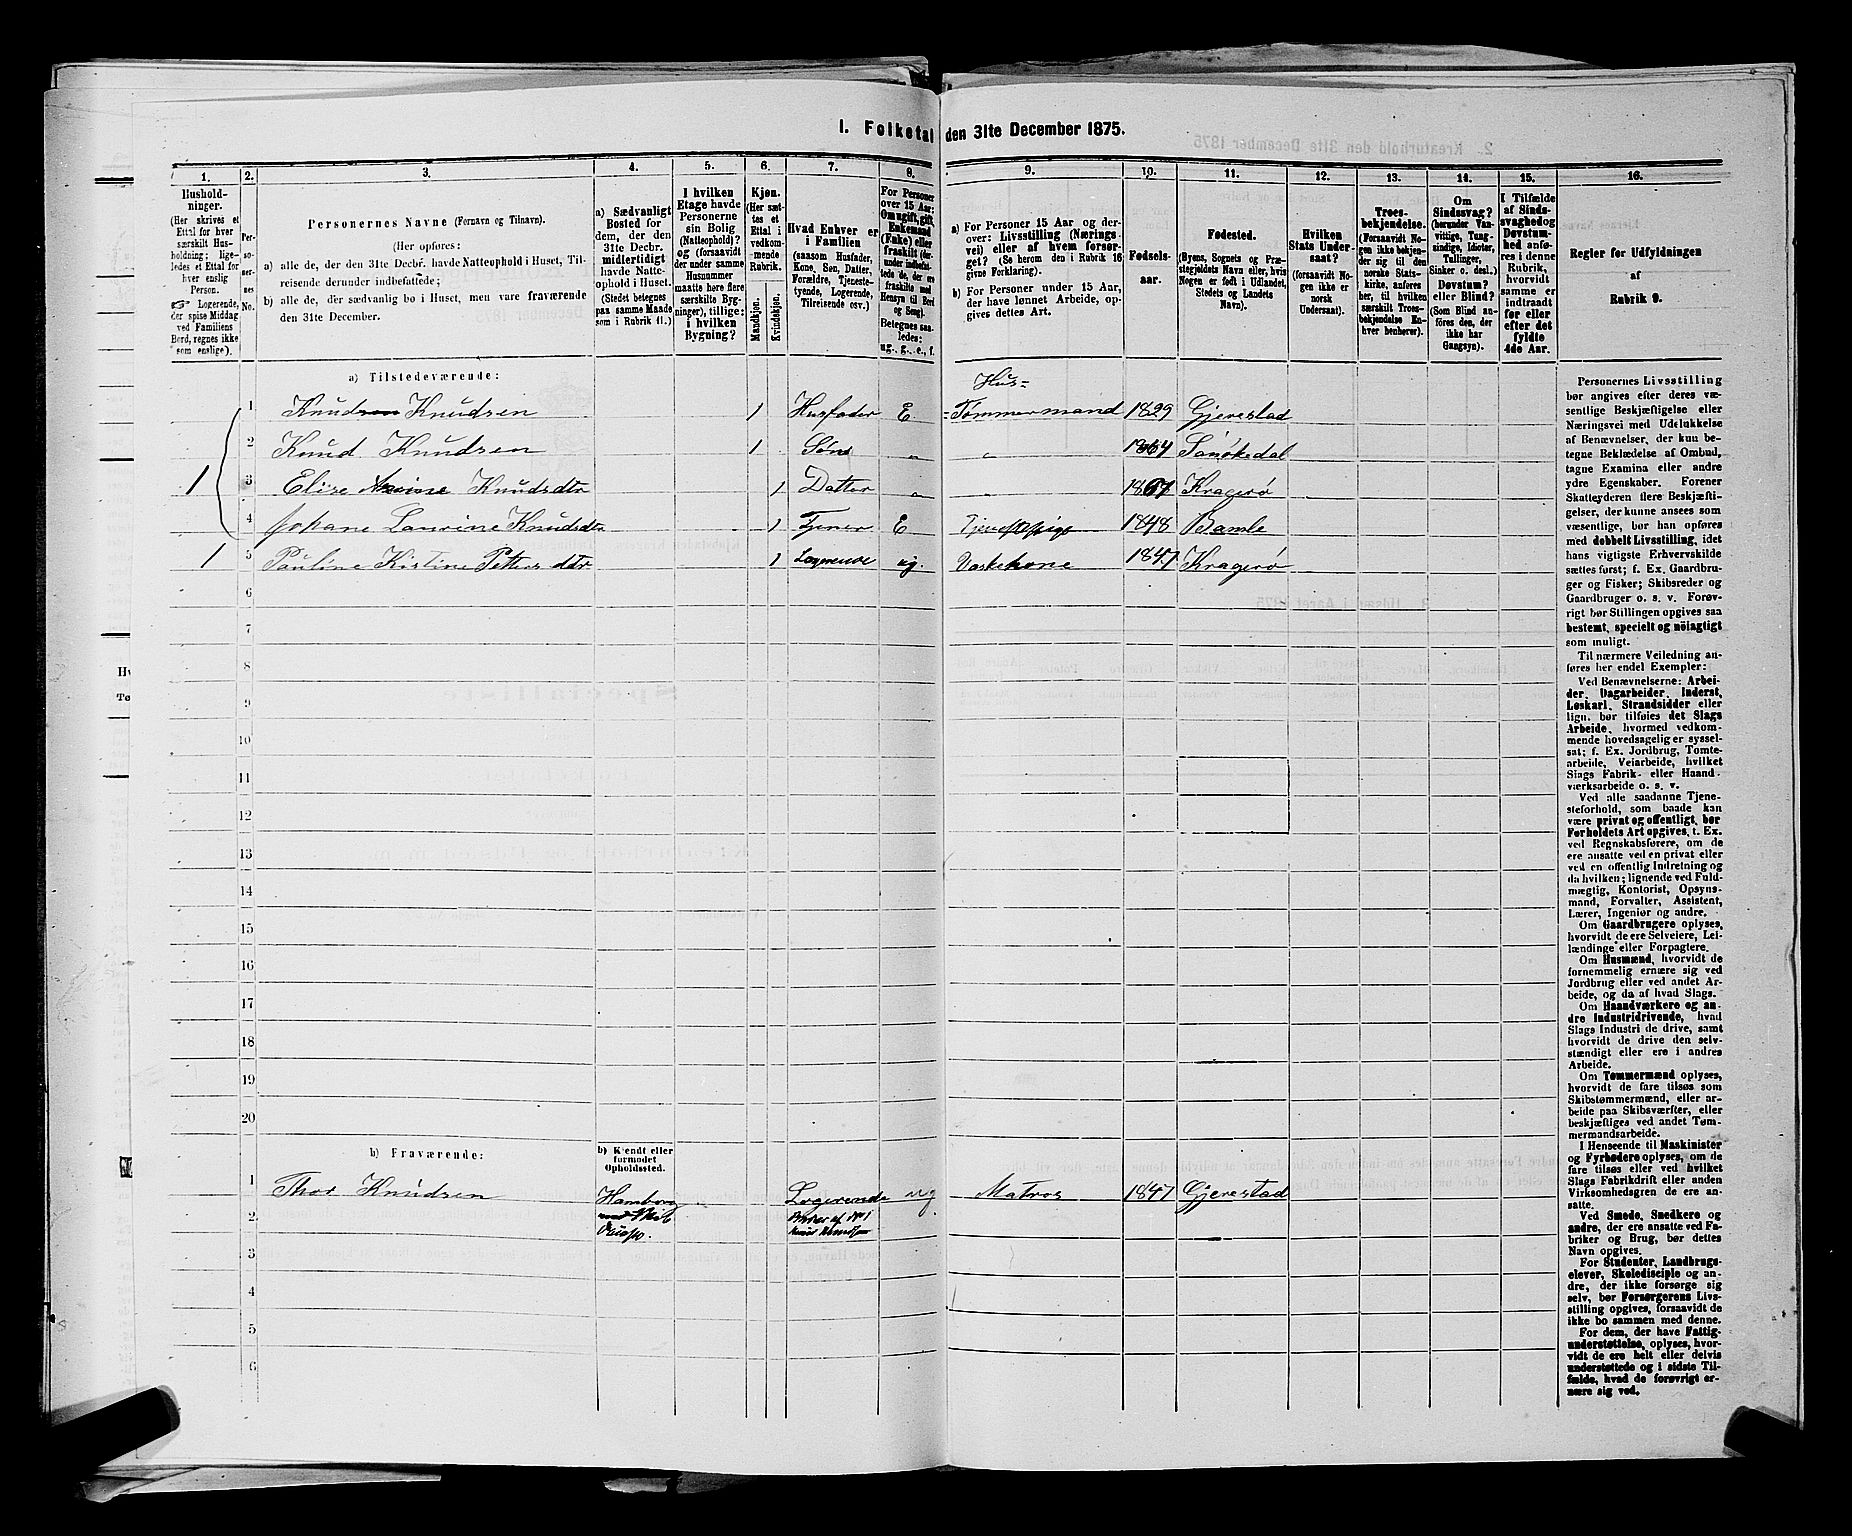 I. Folketal den 31te December 1875.
1.
Husholdninger.
(Her skrives et
Ettal for hver
særskilt Husholdning;
ligeledes et Ettal for
hver enslig
Person.
☞ Logerende,
der spise Middag
ved Familiens
Bord, regnes ikke
som enslige).
2.
Personernes
No.
3.
Personernes Navne (Fornavn og Tilnavn).
(Her opføres:
a) alle de, der den 31te Decbr. havde Natteophold i Huset, Tilreisende
derunder indbefattede;
b) alle de, der sædvanlig bo i Huset, men vare fraværende
den 31te December.
4.
a) Sædvanligt
Bosted for
dem, der den
31te Decbr.
midlertidigt
havde Natteophold
i Huset.
(Stedet betegnes
paa samme Maade
som i Rubrik 11.)
5.
I hvilken
Etage havde
Personerne
sin Bolig
(Natteophold)?
og (forsaavidt
der under samme
Husnummer
maatte høre flere
særskilte Bygninger),
tillige:
i hvilken
Bygning?
6.
Kjøn.
(Her sættes
et
Ettal i
vedkommende
Rubrik.
Mandkjøn.
Kvindekjøn.
7.
Hvad Enhver er
i Familien
(saasom Husfader,
Kone, Søn, Datter,
Forældre, Tjenestetyende,
Logerende,
Tilreisende osv.)
8.
For Personer
over 15 Aar:
Om ugift, gift,
Enkemand
(Enke) eller
fraskilt
Betegnes saaledes:
ug., g., e., f.
9.
a) For Personer 15 Aar og derover:
Livsstilling (Næringsvei)
eller af hvem forsørget?
(Se herom den i Rubrik 16
givne Forklaring).
b) For Personer under 15 Aar,
der have lønnet Arbeide, opgives
dettes Art.
10.
Fødselsaar.
11.
Fødested.
(Byens, Sognets og Præstegjeldets
Navn eller, hvis
Nogen er født i Udlandet,
Stedets og Landets
Navn).
12.
Hvilken
Stats Undersaat?
(forsaavidt Nogen
ikke er
norsk
Undersaat).
13.
Troesbekjendelse.
(Forsaavidt Nogen
ikke bekjender
sig til den
norske Statskirke,
anføres
her, til hvilken
særskilt Troesbekjendelse
Enhver
henhører).
14.
Om
Sindssvag?
(herunder Vanvittige,
Tungsindige,
Idioter,
Tullinger,
Sinker o. desl.)
Døvstum?
eller Blind?
(Som Blind anføres
den, der
ikke har
Gangsyn).
15.
I Tilfælde
af Sindssvaghed
og
Døvstumhed
anføres
i denne
Rubrik,
hvorvidt
samme er
indtraadt
før eller
efter det
fyldte
4de Aar.
16.
Regler for Udfyldningen
af
Rubrik 9.
a) Tilstedeværende:
Hus=
1 Knudsen Knudsen 1 Husfader E. =Tømmermand 1829 Gjerestad
2 Knud Knudsen 1 Søn „ „ 1864 Sanøkedal
1 3 Elise Knudsdtr 1 Datter „ „ 1867 Kragerø
4 Johane Laurine Knudsdtr 1 Tjener E Tjenestepige 1848 Bamle
1 5 Pauline Kistine Petters dtr 1 ug. Vaskekone 1847 Kragerø
6
7
8
9
10
11
12
13
14
15
16
17
18
19
20
b) Fraværende:
b) Kjendt eller
formodet
Opholdssted.
1 Thor Knudsen Hamborg „ Logerende ug Matros 1847 Gjerestad
2
3
4
5
6
Personernes Livsstilling
bør angives efter deres væsentlige
Beskjæftigelse eller
Næringsvei med Udelukkelse
af Benævnelser, der kun betegne
Beklædelse af Ombud,
tagne Examina eller andre
ydre Egenskaber. Forener
Skatteyderen flere Beskjæftigelser,
der kunne ansees som
væsentlige, bør han opføres
med dobbelt Livsstilling, idet
hans vigtigste Erhvervskilde
sættes først; f. Ex. Gaardbruger
og Fisker; Skibsreder og
Gaardbruger o. s. v. Forøvrigt
bør Stillingen opgives saa
bestemt, specielt og nöiagtigt
som muligt.
Til nærmere Veiledning anføres
her endel Exempler:
Ved Benævnelserne: Arbeider,
Dagarbeider, Inderst,
Løskarl, Strandsidder eller
lign. bør tilføies det Slags
Arbeide, hvormed vedkommende
hovedsagelig er sysselsat;
f. Ex. Jordbrug, Tomtearbeide,
Veiarbeide, hvilket
Slags Fabrik- eller Haandværksarbeide
o. s. v.
Ved alle saadanne Tjenesteforhold,
som baade kan
være privat og offentligt, bør
Forholdets Art opgives, t. Ex.
ved Regnskabsførere, om de
ere ansatte ved en privat eller
ved en offentlig Indretning og
da hvilken; lignende ved Fuldmægtig,
Kontorist, Opsynsmand,
Forvalter, Assistent,
Lærer, Ingeniør og andre.
Om Gaardbrugere oplyses,
hvorvidt de ere Selveiere, Leilændinge
eller Forpagtere.
Om Husmænd, hvorvidt de
fornemmelig ernære sig ved
Jordbrug eller ved andet Arbeide,
og da af hvad Slags.
Om Haandværkere og andre
Industridrivende, hvad
Slags Industri de drive, samt
hvorvidt de drive den selvstændigt
eller ere i andres
Arbeide.
Om Tømmermænd oplyses,
hvorvidt de fare tilsøs som
Skibstømmermænd, eller arbeide
paa Skibsværfter, eller
beskjæftiges ved andet Tømmermandsarbeide.
I Henseende til Maskinister
og Fyrbødere oplyses, om de
fare tilsøs eller ved hvilket
Slags Fabrikdrift eller anden
Virksomhedsgren de ere ansatte.
Ved Smede, Snedkere og
andre, der ere ansatte ved Fabriker
og Brug, bør dettes
Navn opgives.
For Studenter, Landbrugselever,
Skoledisciple og andre,
der ikke forsørge sig
selv, bør Forsørgerens Livsstilling
opgives, forsaavidt de
ikke bo sammen med denne.
For dem, der have Fattigunderstøttelse,
oplyses, hvorvidt
de ere helt eller delvis
understøttede og i sidste Tilfælde,
hvad de forøvrigt ernære
sig ved.